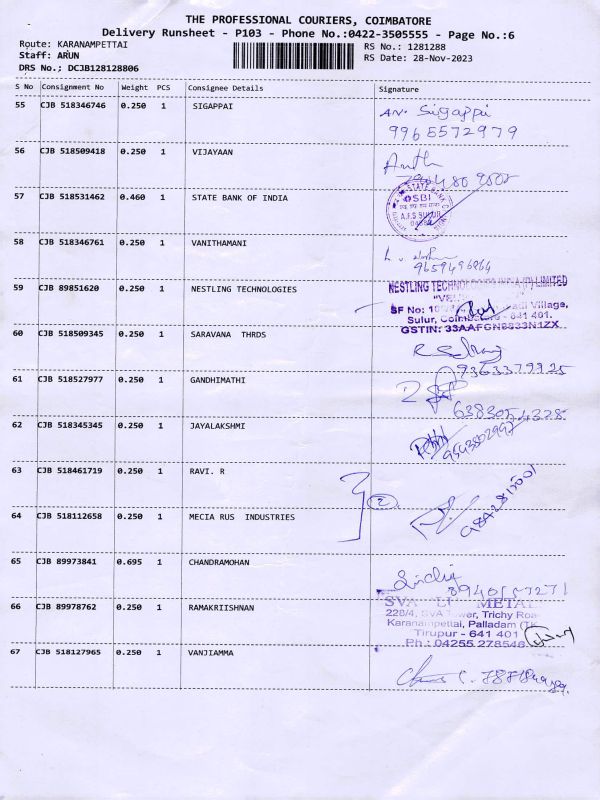 THE PROFESSIONAL COURIERS, COIMBATORE
Delivery Runsheet - P103 - Phone No.:0422-3505555 - Page No.:6
Route: KARANAMPETTAI RS No.: 1281288
Staff: ARUN RS Date: 28-Nov-2023
DRS No.; DCJB128128806
S No Consignment No Weight PCS Consignee Details Signature
55 CJB 518346746 0.250 1 SIGAPPAI AN. Sigappi
9965572979
56 CJB 518509418 0.250 1 VIJAYAAN
57 CJB 518531462 0.460 1 STATE BANK OF INDIA
STATE BANK
SBI
A.F.S SULUR
58 CJB 518346761 0.250 1 VANITHAMANI
9659496964
59 CJB 89851620 0.250 1 NESTLING TECHNOLOGIES NESTLING LIMITED
SF No: Village,
Sulur, 641 401.
GSTIN: 33AAFCN8833N1ZX
60 CJB 518509345 0.250 1 SARAVANA THRDS
9363379925
61 CJB 518527977 0.250 1 GANDHIMATHI
6383054328
62 CJB 518345345 0.250 1 JAYALAKSHMI
63 CJB 518461719 0.250 1 RAVI. R
2
64 CJB 518112658 0.250 1 MECIA RUS INDUSTRIES
65 CJB 89973841 0.695 1 CHANDRAMOHAN
8940157271
66 CJB 89978762 0.250 1 RAMAKRIISHNAN SVA METAL
228/4, SVA Tower, Trichy Road
Karanampettai, Palladam (TK
Tirupur - 641 401
Ph.: 04255 278546
67 CJB 518127965 0.250 1 VANJIAMMA